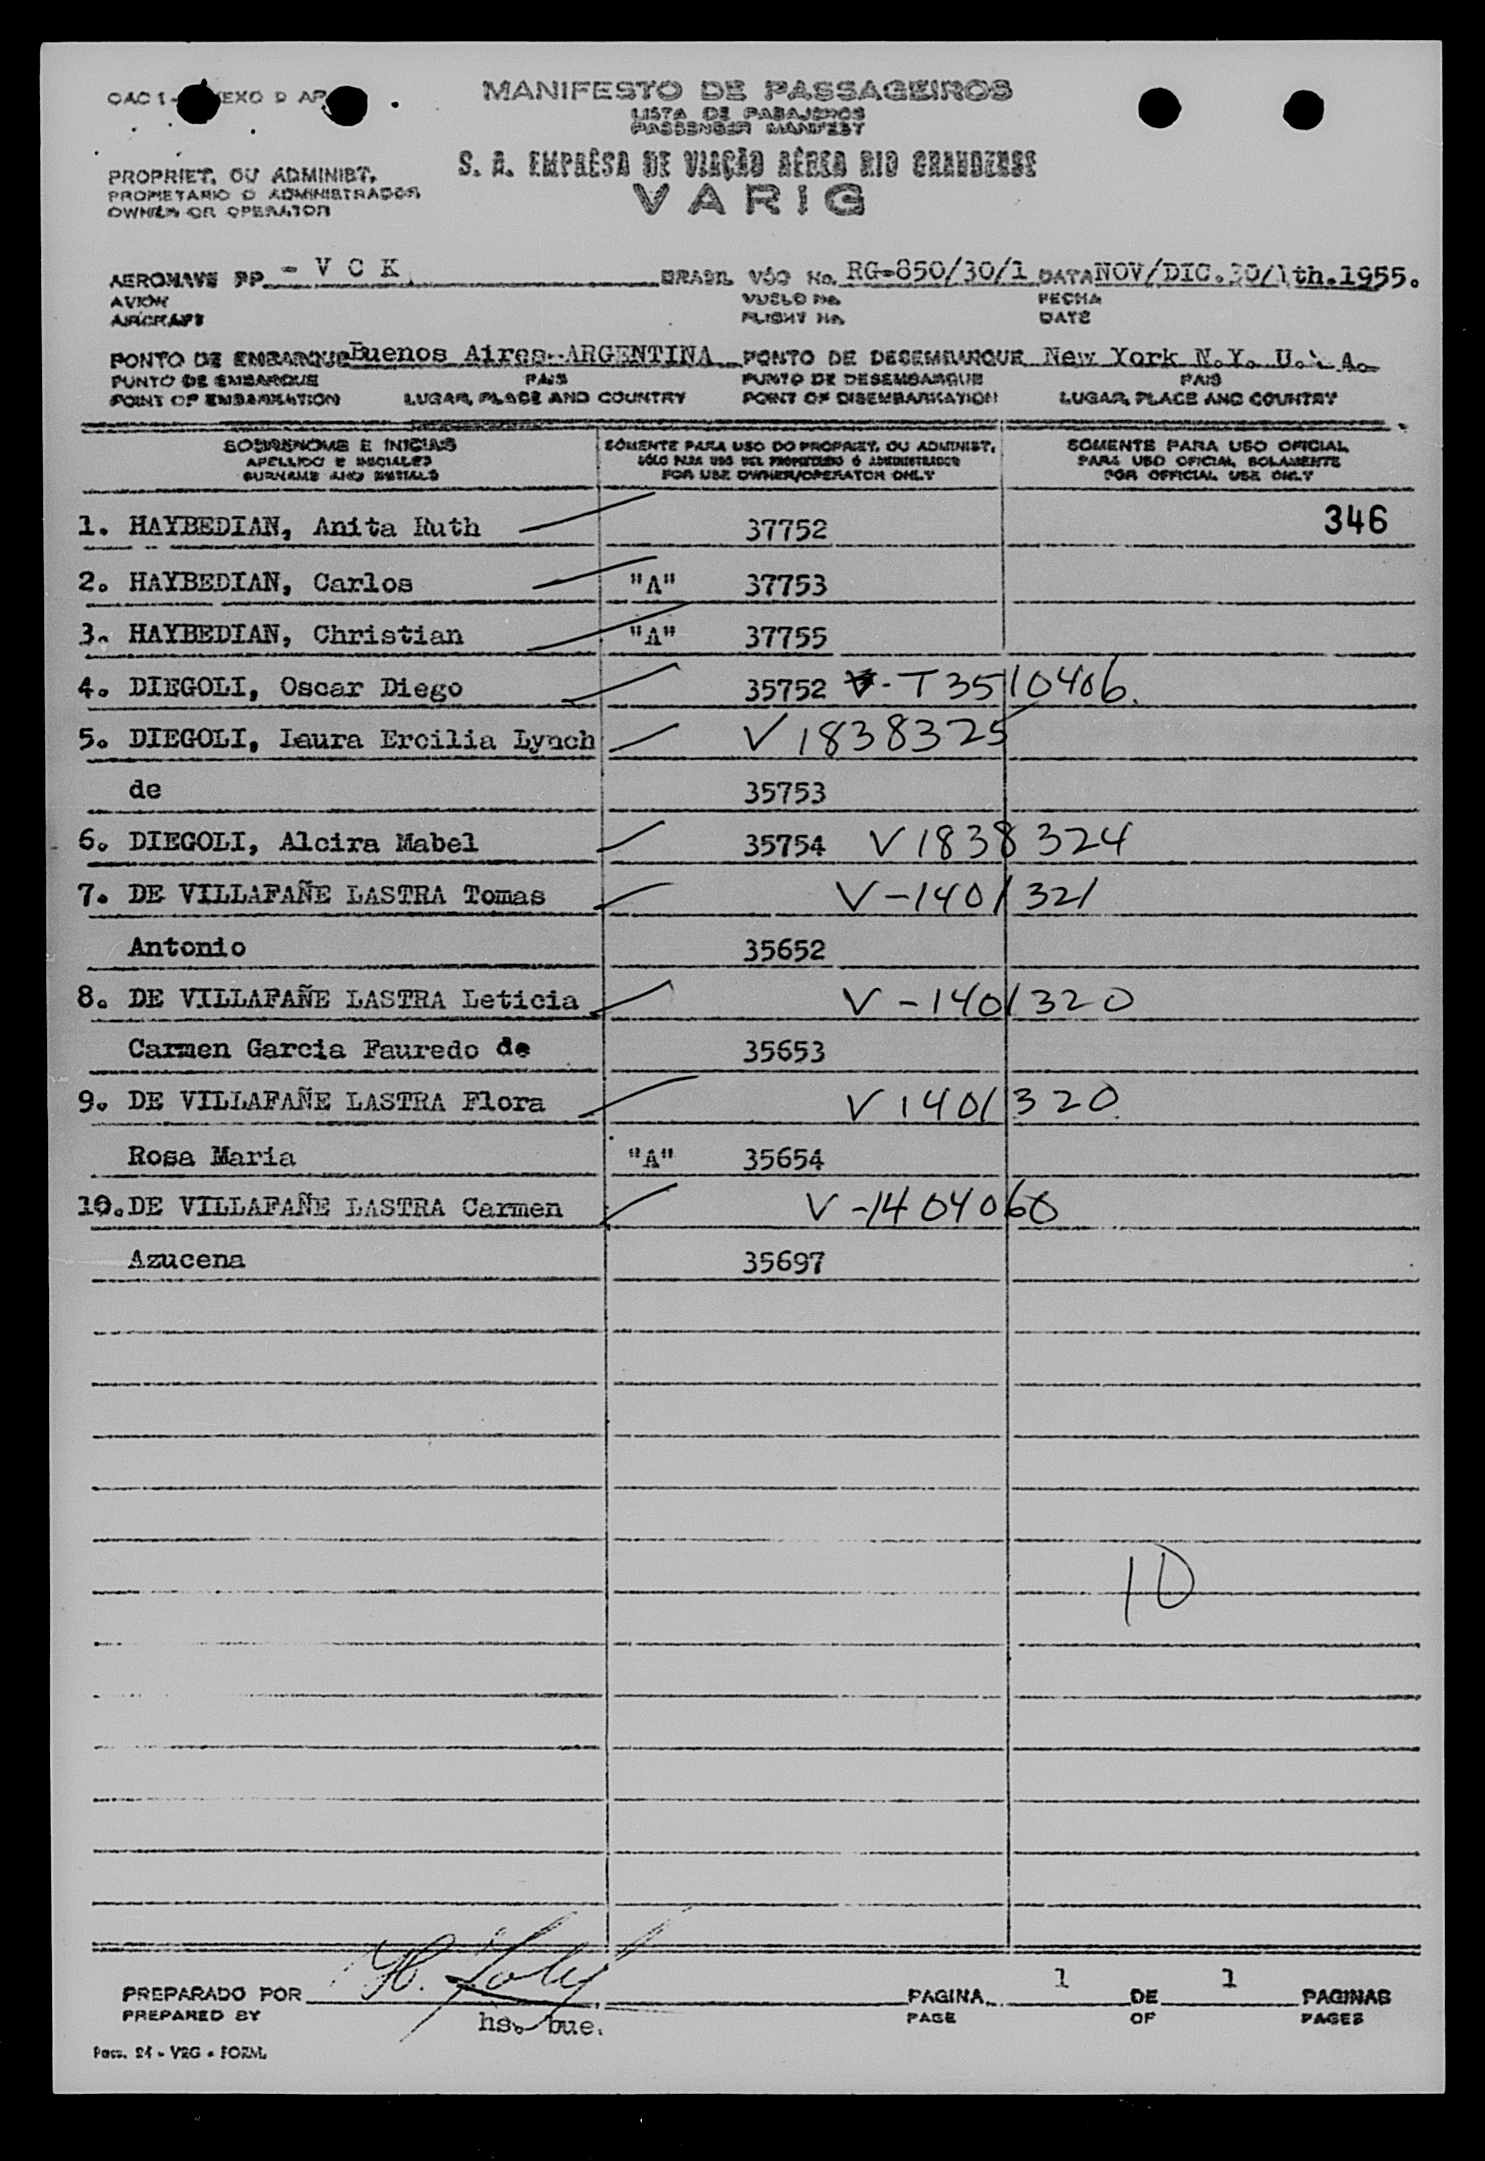 OAC 1 - EXO 9 AP
MANIFESTO DE PASSAGEIROS
LISTA DE PASAJEROS
PASSENGER MANIFEST
PROPRIET. OU ADMINIST.
PROPIETARIO O ADMINISTRADOR
OWNER OR OPERATOR
S. A. EMPRÊSA DE VIAÇÃO AÉREA RIO GRANDENSE
VARIG
AERONAVE PP - V C K BRASIL VÔO No. RG-850/30/1 DATA NOV/DIC.30/1th.1955.
AVION VUELO No. FECHA
AIRCRAFT FLIGHT No. DATE
PONTO DE EMBARQUE Buenos Aires-ARGENTINA PONTO DE DESEMBARQUE New York N.Y. U.S.A.
PUNTO DE EMBARQUE PAIS PUNTO DE DESEMBARQUE PAIS
POINT OF EMBARKATION LUGAR, PLACE AND COUNTRY POINT OF DISEMBARKATION LUGAR, PLACE AND COUNTRY
SOBRENOME E INICIAIS SÒMENTE PARA USO DO PROPRIET. OU ADMINIST. SOMENTE PARA USO OFICIAL
APELLIDO E INICIALES SÓLO PARA USO DEL PROPIETARIO Ó ADMINISTRADOR PARA USO OFICIAL SOLAMENTE
SURNAME AND INITIALS FOR USE OWNER/OPERATOR ONLY FOR OFFICIAL USE ONLY
1. HAYBEDIAN, Anita Ruth 37752 346
2. HAYBEDIAN, Carlos "A" 37753
3. HAYBEDIAN, Christian "A" 37755
4. DIEGOLI, Oscar Diego 35752 V-T3510406.
5. DIEGOLI, Laura Ercilia Lynch V 1838325
de 35753
6. DIEGOLI, Alcira Mabel 35754 V 1838324
7. DE VILLAFAÑE LASTRA Tomas V-1401321
Antonio 35652
8. DE VILLAFAÑE LASTRA Leticia V-1401320
Carmen Garcia Fauredo de 35653
9. DE VILLAFAÑE LASTRA Flora V 1401320
Rosa Maria "A" 35654
10. DE VILLAFAÑE LASTRA Carmen V-1404060
Azucena 35697
10
PREPARADO POR PAGINA 1 DE 1 PAGINAS
PREPARED BY hs. bue. PAGE OF PAGES
Pass. 24 - VRG - FORM.